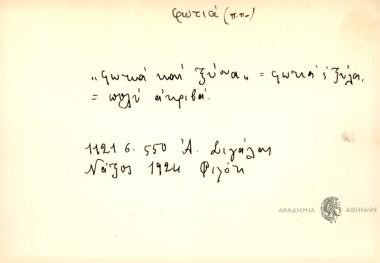 φωτιά (π.π.)
„φωτιά καί ξύνα„ = φωτιά ς ξύλα,
= πολύ ἀκριβά.
1121 σ. 550 Ἀ. Σιγάλας
Νάξος 1924 Φιλότι
ΑΚΑΔΗΜΙΑ ΑΘΗΝΩΝ